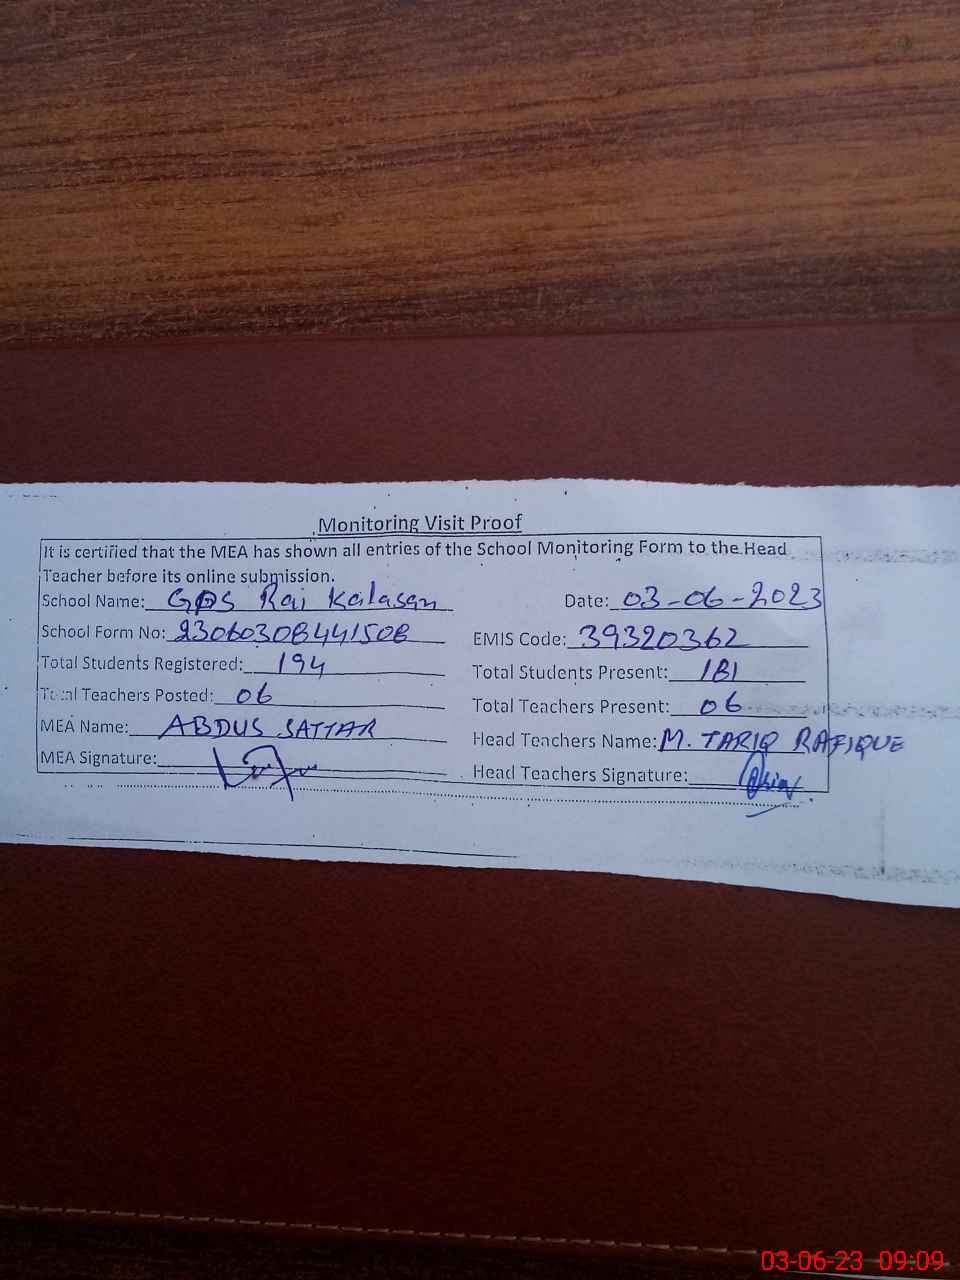 Monitoring Visit Proof
It is certified that the MEA has shown all entries of the School Monitoring Form to the Head
Teacher before its online submission.
School Name: GPS Rai Kalasan Date: 03-06-2023
School Form No: 23060308441508 EMIS Code: 39320362
Total Students Registered: 194 Total Students Present: 181
Total Teachers Posted: 06 Total Teachers Present: 06
MEA Name: ABDUS SATTAR Head Teachers Name: M. TARIQ RAFIQUE
MEA Signature: Head Teachers Signature:
03-06-23 09:09